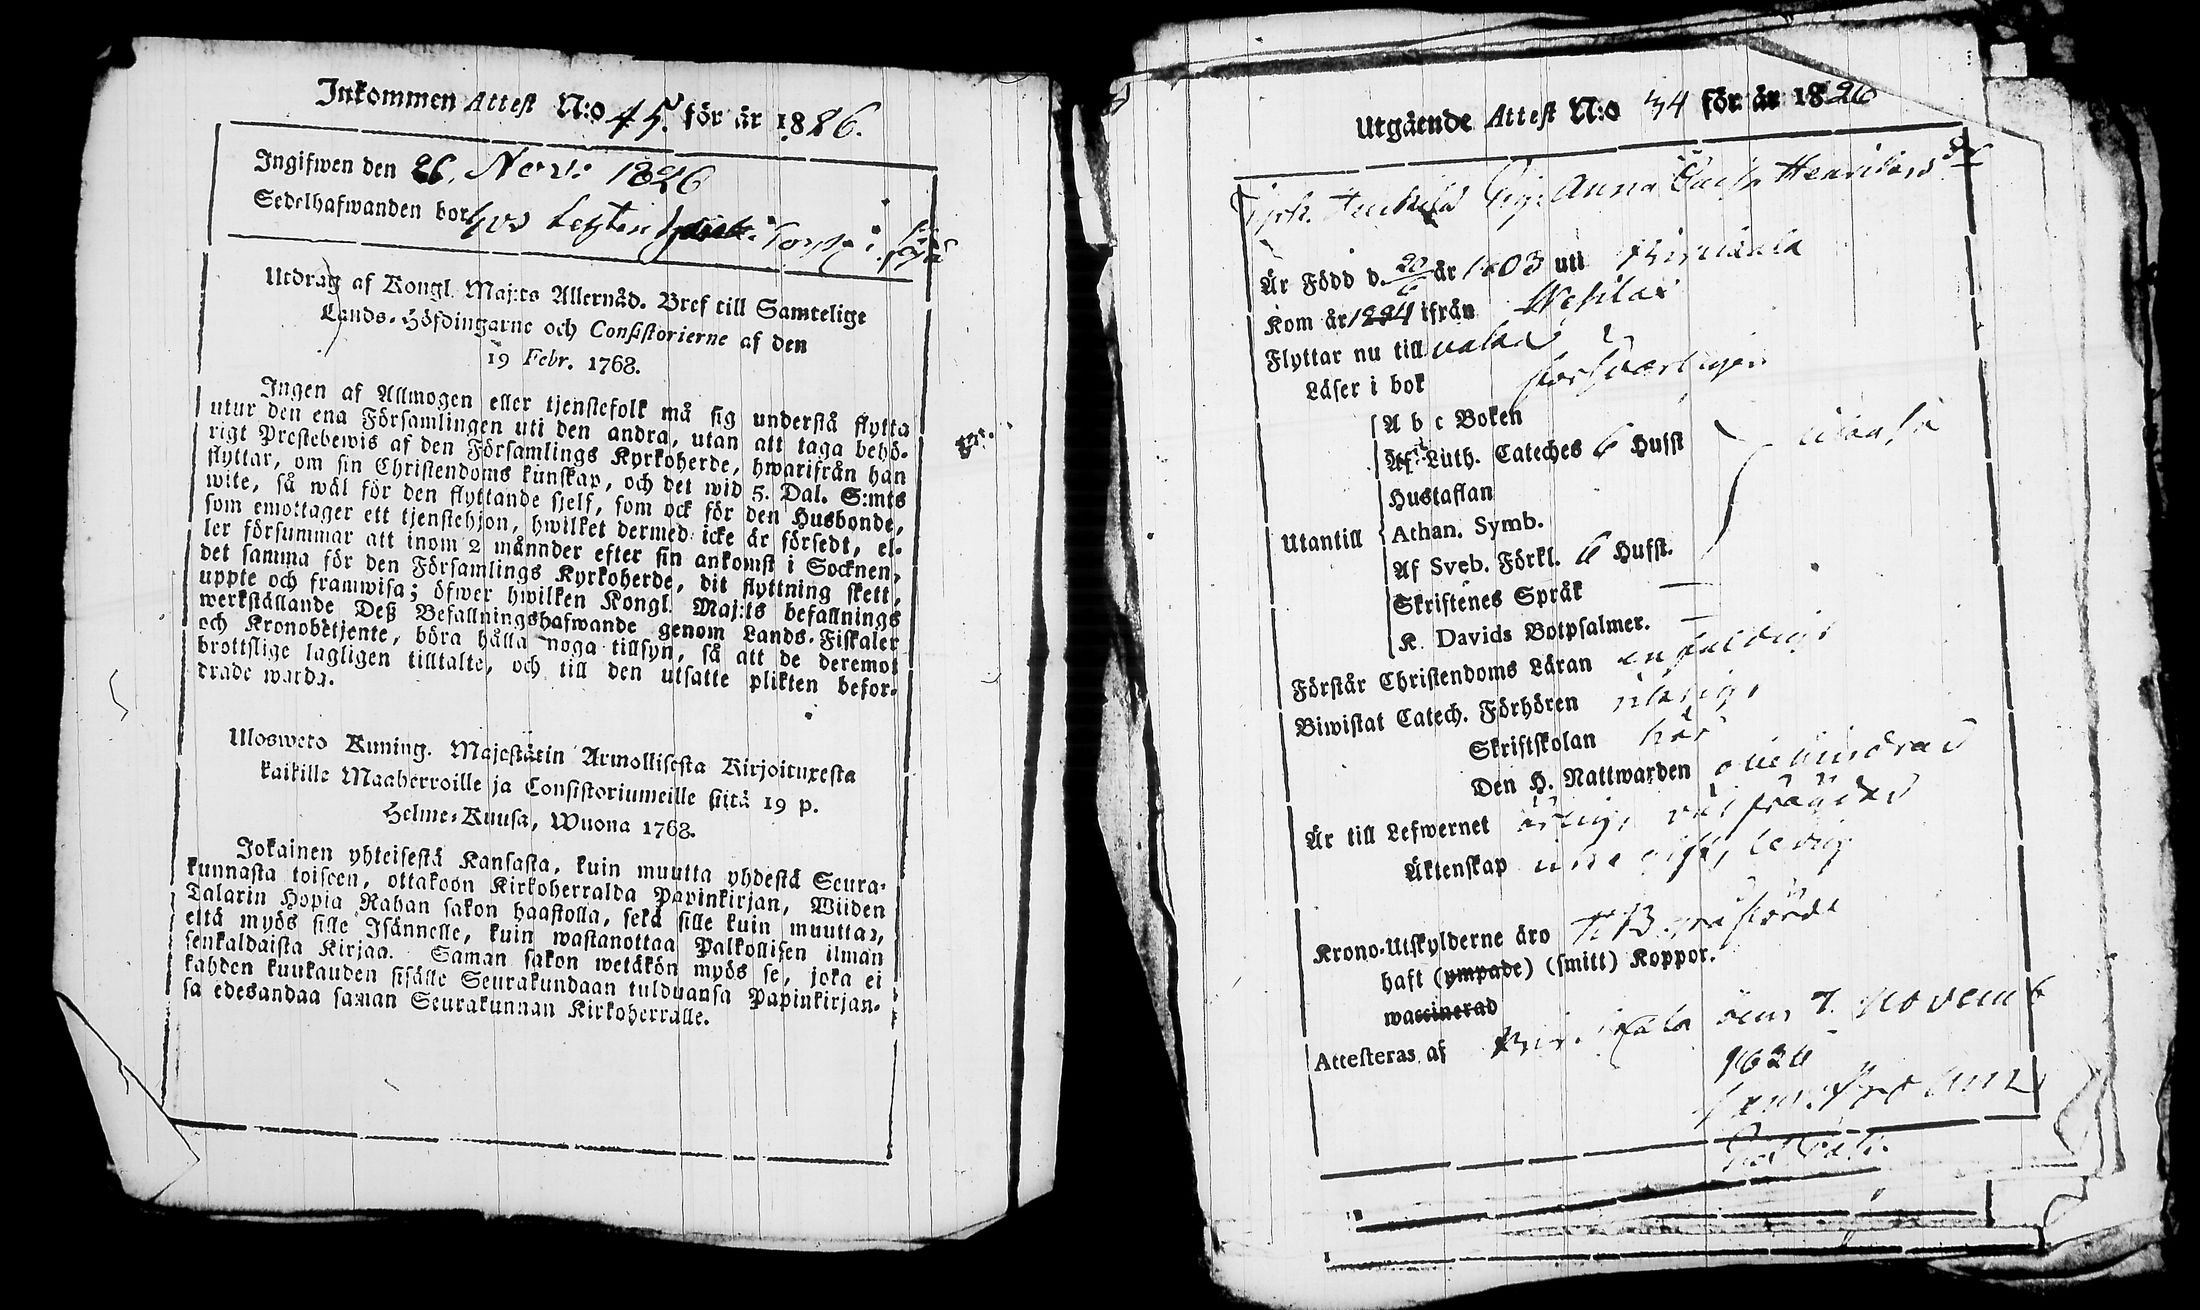 Inkommen Attest N:o 45. för år 1826.
Ingifwen den 26. Nov: 1826
Sedelhafwanden bor hos
Utdrag af Kongl. Maj:ts Allernåd. Bref till Samtelige
Lands-Höfdingarne och Consistorierne af den
19 Febr. 1768.
Ingen af Allmogen eller tjenstefolk må sig understå flytta
utur den ena Församlingen uti den andra, utan att taga behö-
rigt Prestebewis af den Församlings Kyrkoherde, hwarifrån han
flyttar, om sin Christendoms kunskap, och det wid 5. Dal. S:mts
wite, så wäl för den flyttande sjelf, som ock för den Husbonde,
som emottager ett tjenstehjon, hwilket dermed icke är försedt, el-
ler försummar att inom 2 månnder efter sin ankomst i Socknen,
det samma för den Församlings Kyrkoherde, dit flyttning skett,
uppte och framwisa; öfwer hwilken Kongl. Maj:ts befallnings
werkställande Deß Befallningshafwande genom Lands-Fiskaler
och Kronobetjente, böra hålla noga tillsyn, så att de deremot
brottslige lagligen tilltalte, och till den utsatte plikten befor-
drade warda.
Ulosweto Kuning. Majestätin Armollisesta Kirjoituxesta
kaikille Maaherroille ja Consistoriumeille siitä 19 p.
Helme-Kuusa, Wuona 1768.
Jokainen yhteisestä Kansasta, kuin muutta yhdestä Seura-
kunnasta toiseen, ottakoon Kirkoherralda Papinkirjan, Wiiden
Talarin Hopia Rahan sakon haastolla, sekä sille kuin muuttaa,
että myös sille Isännelle, kuin wastanottaa Palkollisen ilman
senkaldaista Kirjaa. Saman sakon wetäkön myös se, joka ei
kahden kuukauden sisälle Seurakundaan tulduansa Papinkirjan-
sa edesandaa saman Seurakunnan Kirkoherralle.
Utgående Attest N:o 34 för år 1826
Pig. Anna Henriksd:r
Är Född d. 20/6 år 1803 uti
Kom år 1824 ifrån Wesilax
Flyttar nu till
Läser i bok försvarligen
A b c Boken
Af Luth. Cateches 6 Hufst
Hustaflan
Utantill Athan. Symb.
Af Sveb. Förkl. 6 Hufst.
Skriftenes Språk —
K. Davids Botpsalmer. —
Förstår Christendoms Läran enfaldigt
Biwistat Catech. Förhören riktigt
Skriftskolan här
Den H. Nattwarden obehindrad
Är till Lefwernet ärlig, välfrägdad
Äktenskap ogift, ledig
Krono-Utskylderne äro påförde
haft (ympade) (smitt) Koppor.
waccinerad
Attesteras af den 7 Novemb
1826